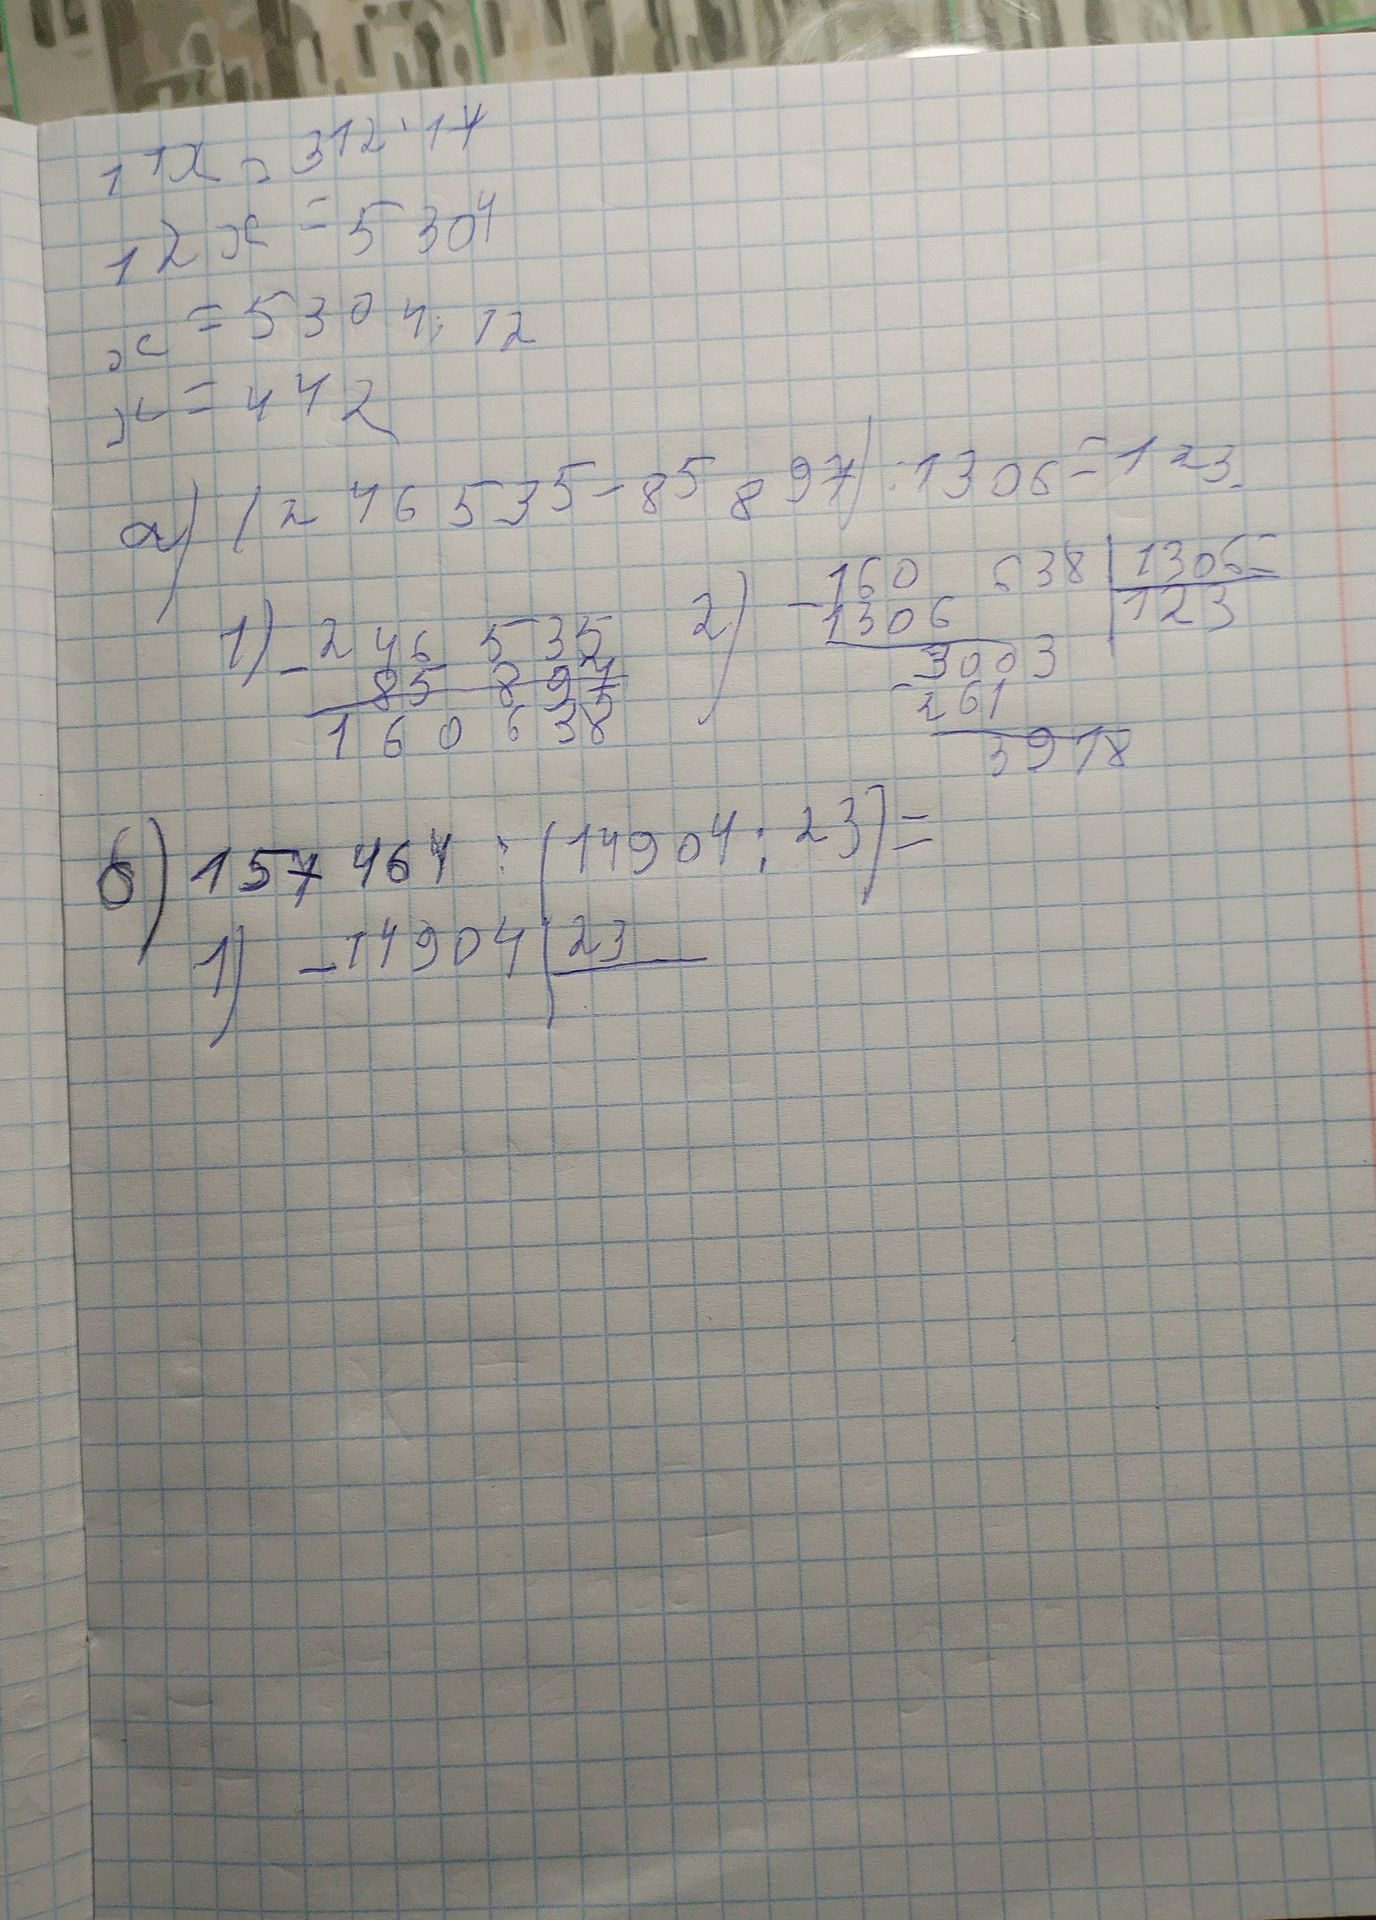 12x = 312 · 17
12x = 5304
x = 5304 : 12
x = 442
а) (246 535 - 85 897) : 1306 = 123
1) - 246 535 2) - 160 638 | 1306
85 897 1306 123
160 638 3003
- 261
3918
б) 157 464 : (14904 : 23) =
1) - 14904 | 23